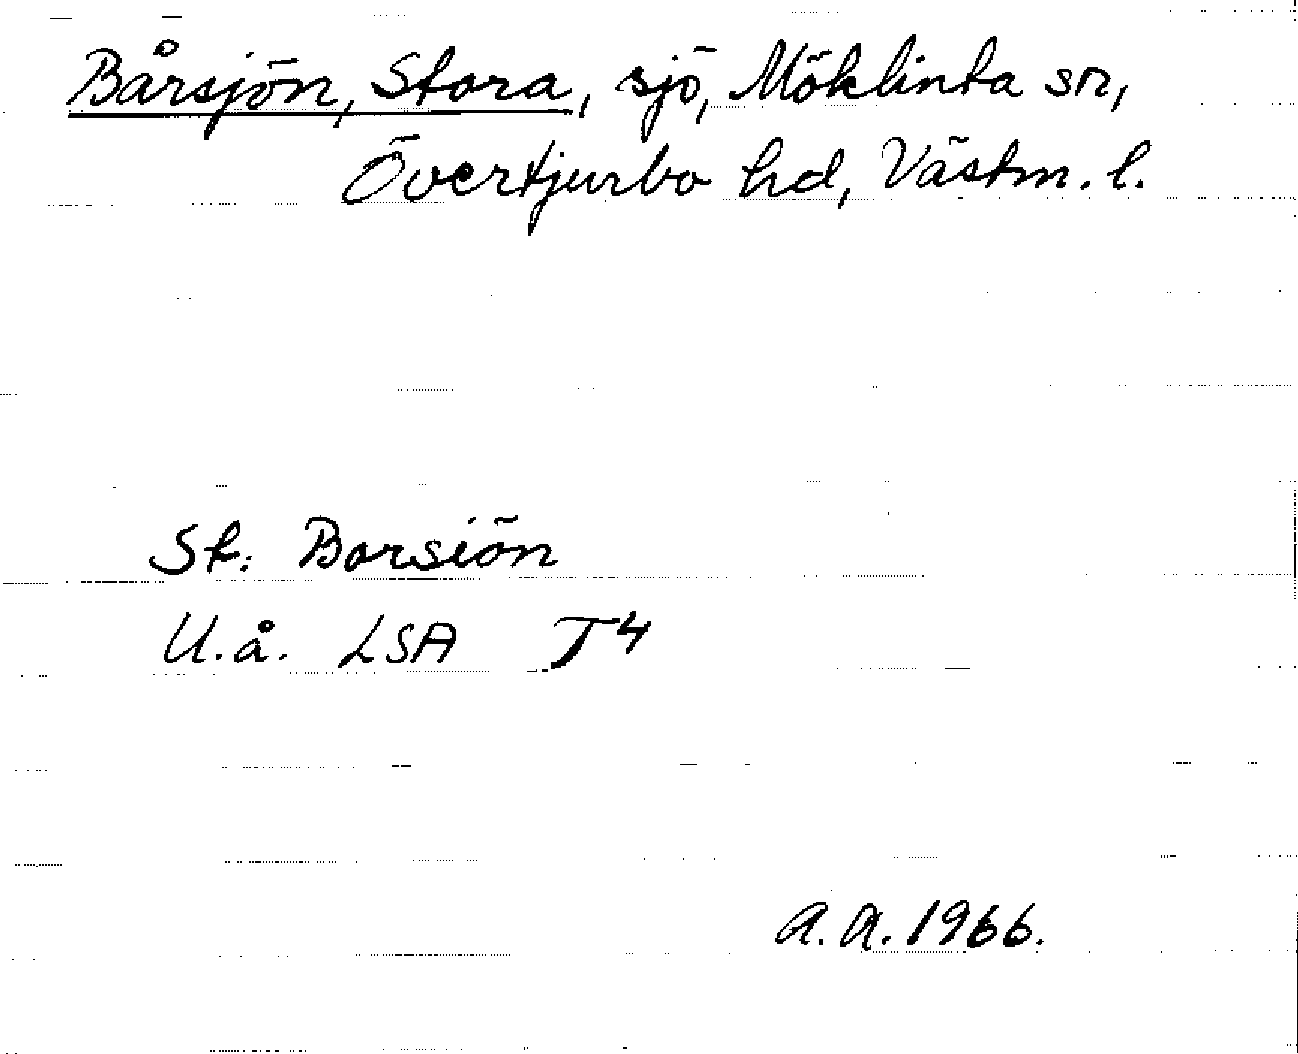 Bårsjön, Stora, sjö, Möklinta sn,
Övertjurbo hd, Västm. l.
St. Borsiön
U.å. LSA T4
A.A. 1966.